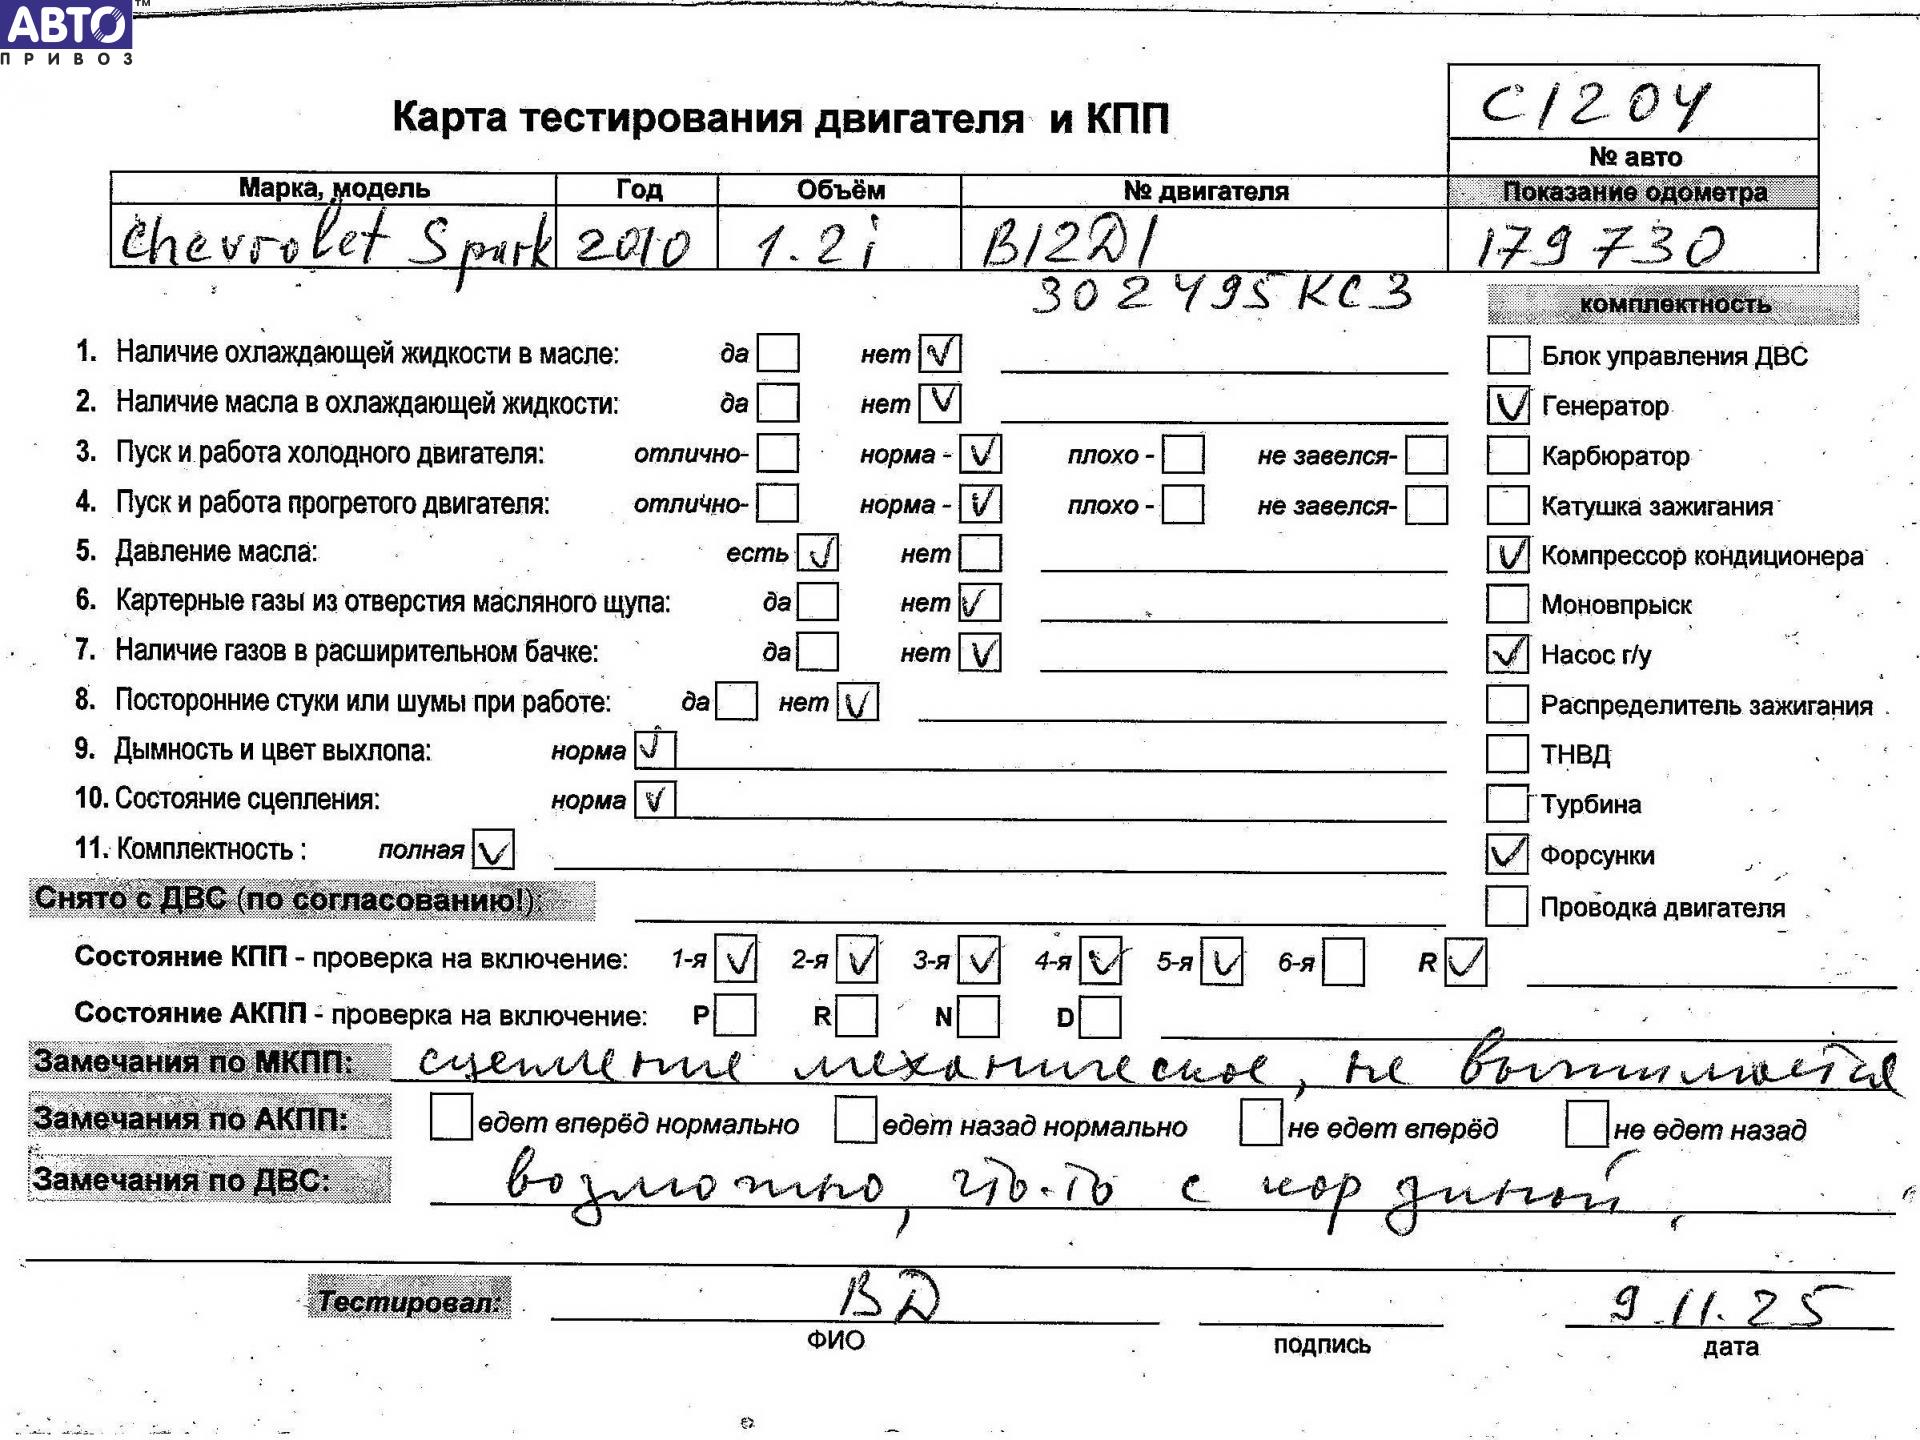 АВТО™
ПРИВОЗ
С1204
Карта тестирования двигателя и КПП
№ авто
Марка, модель Год Объём № двигателя Показание одометра
Chevrolet Spark 2010 1.2i B12D1 179730
302495KC3
комплектность
1. Наличие охлаждающей жидкости в масле: да нет √ Блок управления ДВС
2. Наличие масла в охлаждающей жидкости: да нет √ √ Генератор
3. Пуск и работа холодного двигателя: отлично- норма - √ плохо - не завелся- Карбюратор
4. Пуск и работа прогретого двигателя: отлично- норма - √ плохо - не завелся- Катушка зажигания
5. Давление масла: есть √ нет √ Компрессор кондиционера
6. Картерные газы из отверстия масляного щупа: да нет √ Моновпрыск
7. Наличие газов в расширительном бачке: да нет √ √ Насос г/у
8. Посторонние стуки или шумы при работе: да нет √ Распределитель зажигания
9. Дымность и цвет выхлопа: норма √ ТНВД
10. Состояние сцепления: норма √ Турбина
11. Комплектность : полная √ √ Форсунки
Снято с ДВС (по согласованию!): Проводка двигателя
Состояние КПП - проверка на включение: 1-я √ 2-я √ 3-я √ 4-я √ 5-я √ 6-я R √
Состояние АКПП - проверка на включение: P R N D
Замечания по МКПП: сцепление механическое, не выжимается
Замечания по АКПП: едет вперёд нормально едет назад нормально не едет вперёд не едет назад
Замечания по ДВС: возможно, что-то с корзиной.
Тестировал: ВД 9.11.25
ФИО подпись дата